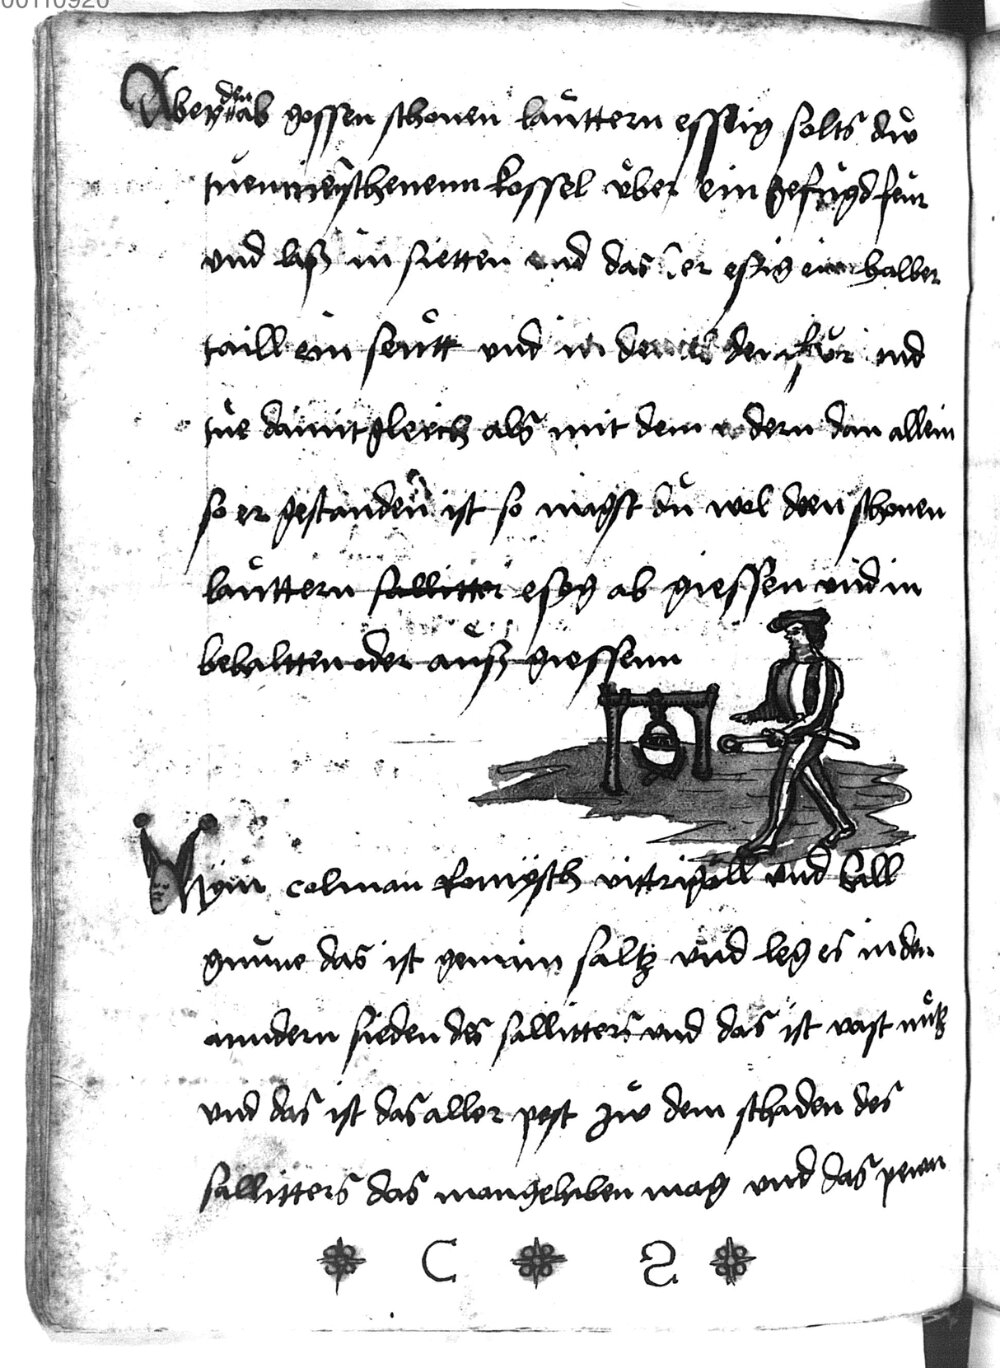 00110920
Aber den ab gossen schonen lauttern essig solts dw
tuen in ein kossel uͤber ein gefuͤgd feur
und laß in sietten und das der essig ein halber
taill ein seutt und in den fuͦr und
tuͤe damit gleich als mit dem odern dan allein
so er gestanden ist so magst duͦ wol den schonen
lauͤttern sallitter essig ab giessen und in
behaltten oder auß giessenn
Nym colman Romysch vittriyoll und Sall
gmme das ist gemain saltz und leg es in den
anndern sieden des sallitters und das ist vast nuͤtz
und das ist das aller pest zuͦ dem schaden des
sallitters das man gehaben mag und das
C 2